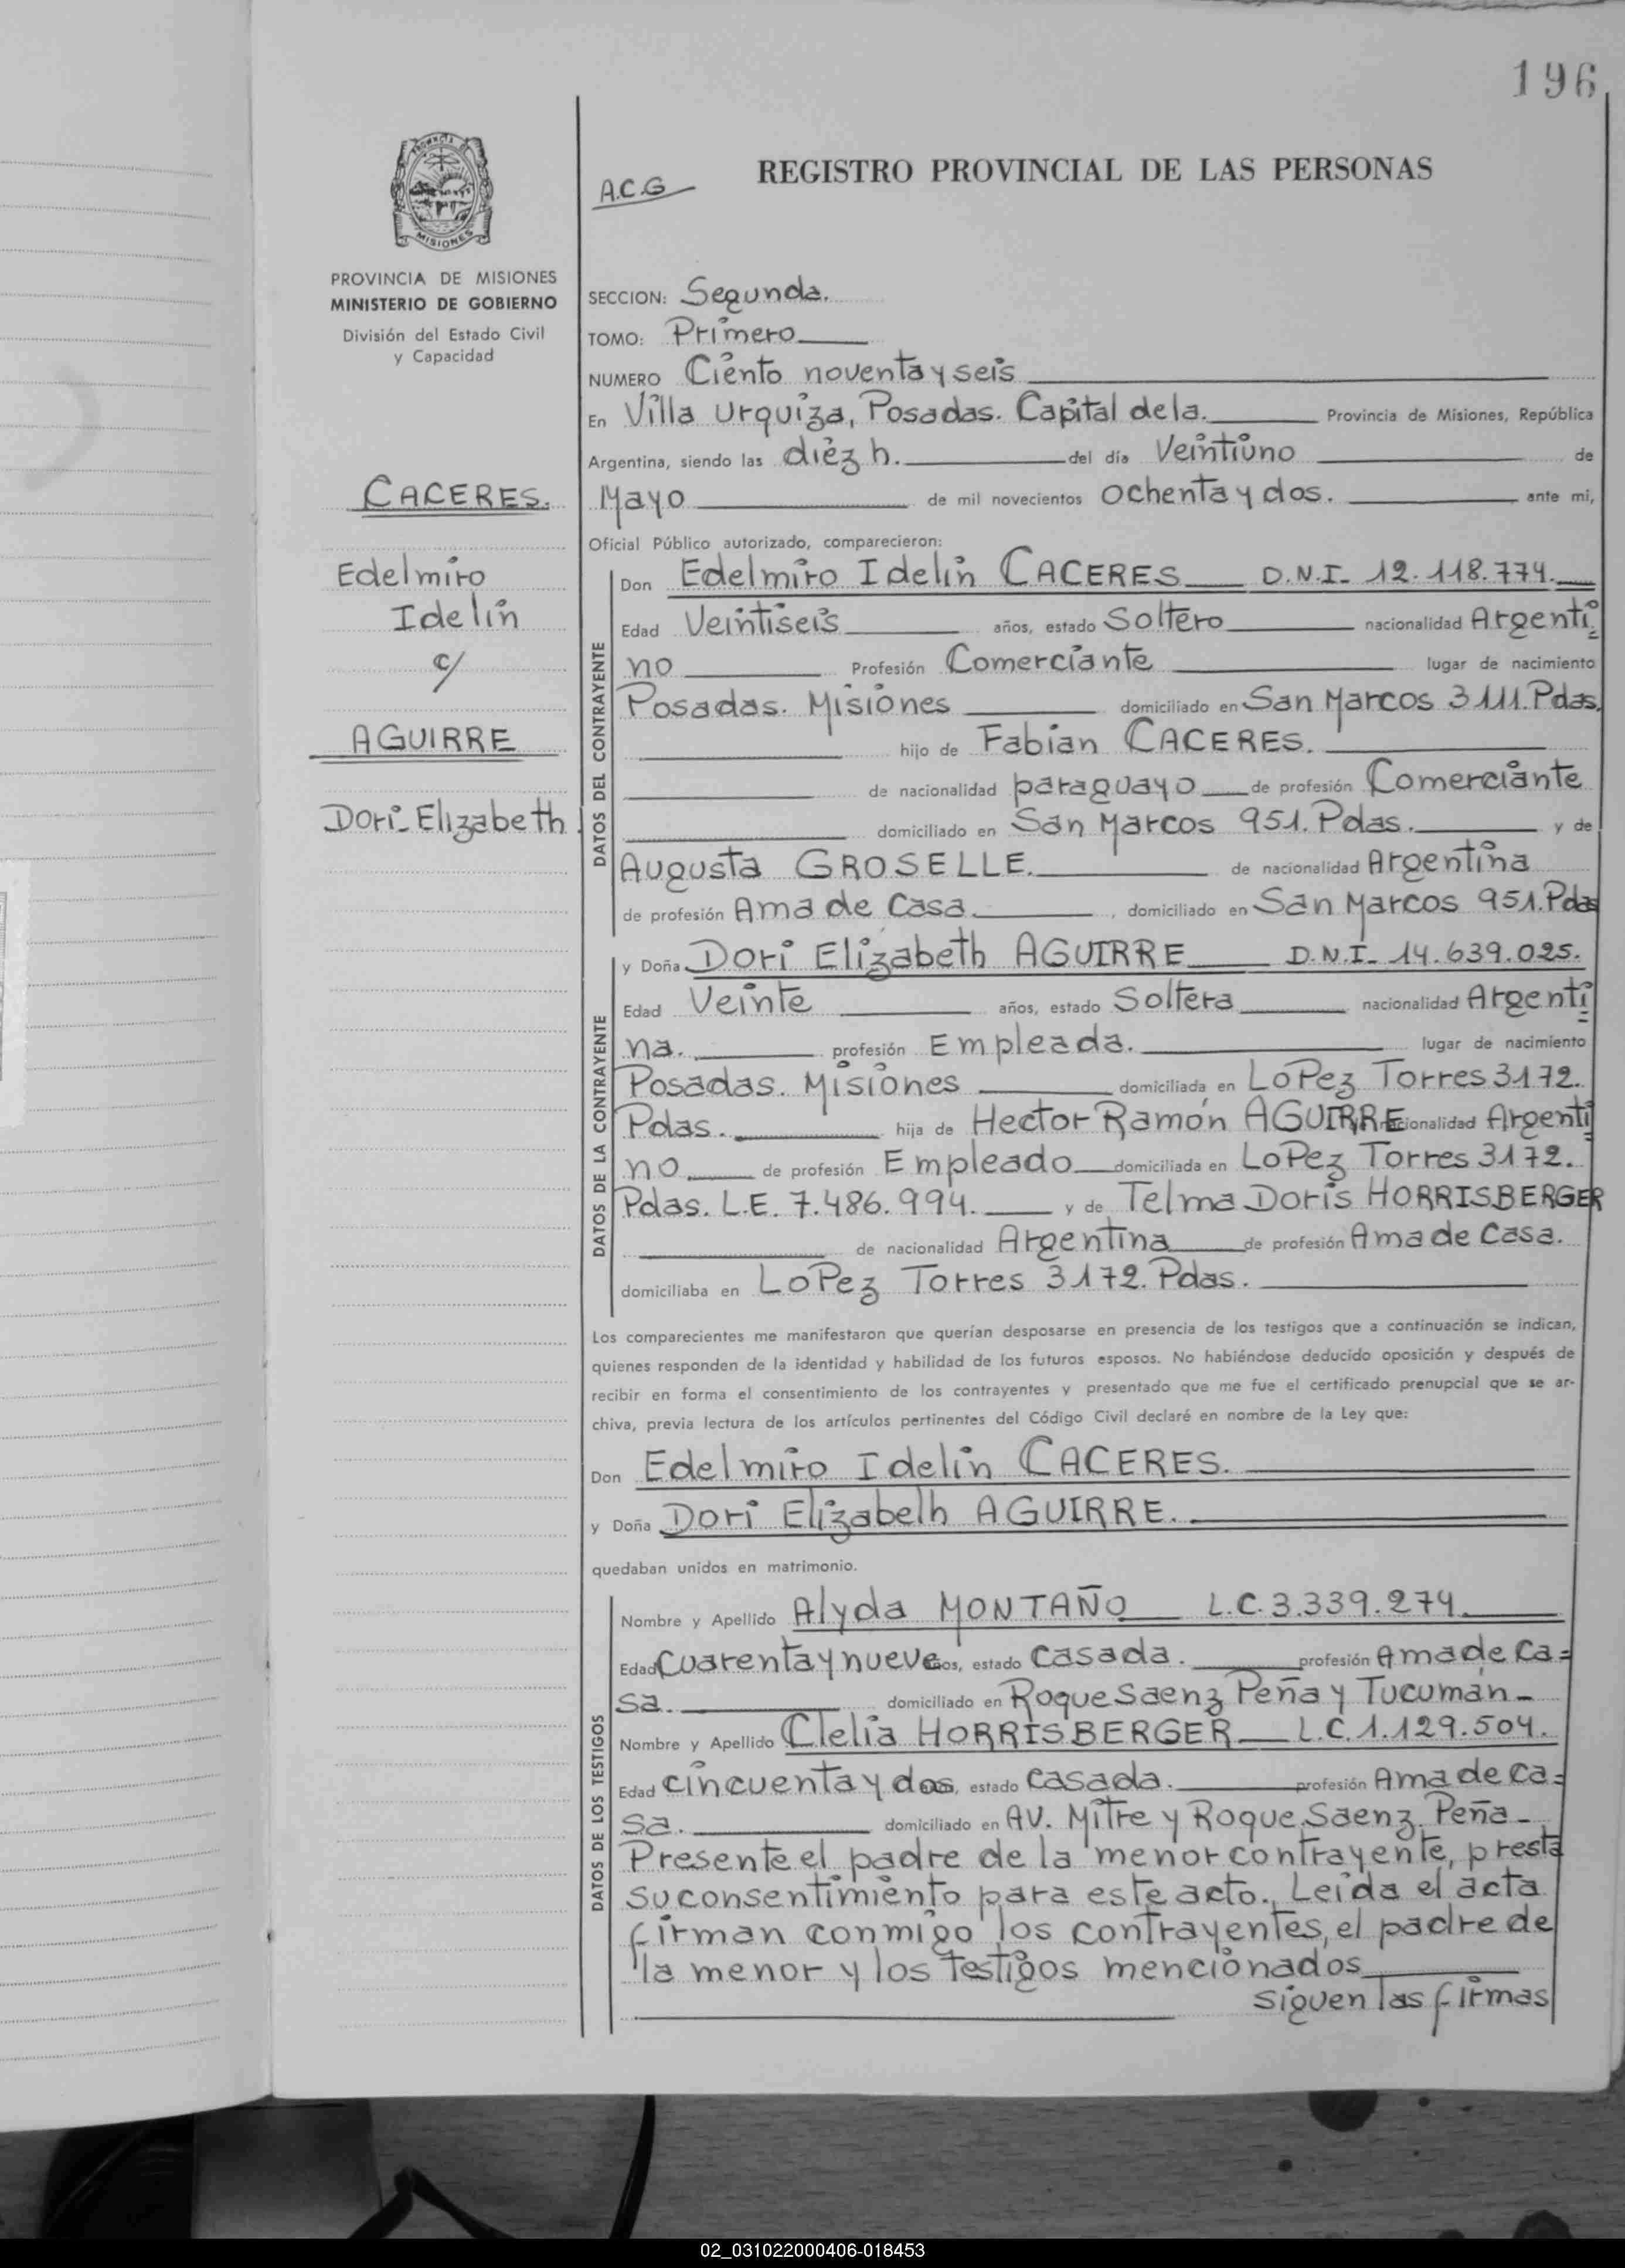 196
PROVINCIA DE
MISIONES
PROVINCIA DE MISIONES
MINISTERIO DE GOBIERNO
División del Estado Civil
y Capacidad
CACERES.
Edelmiro
Idelin
c/
AGUIRRE
Dori-Elizabeth.
A.C.G
REGISTRO PROVINCIAL DE LAS PERSONAS
SECCION: Segunda.
TOMO: Primero
NUMERO Ciento noventa y seis
En Villa Urquiza, Posadas. Capital de la. Provincia de Misiones, República
Argentina, siendo las diez h. del día Veintiuno de
Mayo de mil novecientos ochenta y dos. ante mi,
Oficial Público autorizado, comparecieron:
DATOS DEL CONTRAYENTE
Don Edelmiro Idelin CACERES D.N.I- 12.118.774.
Edad Veintiseis años, estado Soltero nacionalidad Argenti=
no Profesión Comerciante lugar de nacimiento
Posadas. Misiones domiciliado en San Marcos 3111. Pdas.
hijo de Fabian CACERES.
de nacionalidad paraguayo de profesión Comerciante
domiciliado en San Marcos 951. Pdas. y de
Augusta GROSELLE. de nacionalidad Argentina
de profesión Ama de Casa. , domiciliado en San Marcos 951. Pdas
DATOS DE LA CONTRAYENTE
y Doña Dori Elizabeth AGUIRRE D.N.I- 14.639.025.
Edad Veinte años, estado Soltera nacionalidad Argenti=
na. profesión Empleada. lugar de nacimiento
Posadas. Misiones domiciliada en LoPez Torres 3172.
Pdas. hija de Hector Ramón AGUIRRE nacionalidad Argenti=
no de profesión Empleado domiciliada en LoPez Torres 3172.
Pdas. L.E. 7.486.994. y de Telma Doris HORRISBERGER
de nacionalidad Argentina de profesión Ama de Casa.
domiciliaba en LoPez Torres 3172. Pdas.
Los comparecientes me manifestaron que querían desposarse en presencia de los testigos que a continuación se indican,
quienes responden de la identidad y habilidad de los futuros esposos. No habiéndose deducido oposición y después de
recibir en forma el consentimiento de los contrayentes y presentado que me fue el certificado prenupcial que se ar-
chiva, previa lectura de los artículos pertinentes del Código Civil declaré en nombre de la Ley que:
Don Edelmiro Idelin CACERES.
y Doña Dori Elizabelh AGUIRRE.
quedaban unidos en matrimonio.
DATOS DE LOS TESTIGOS
Nombre y Apellido Alyda MONTAÑO L.C. 3.339.274.
Edad Cuarenta y nueve años, estado Casada. profesión Ama de Ca=
sa. domiciliado en Roque Saenz Peña y Tucumán-
Nombre y Apellido Clelia HORRISBERGER L.C. 1.129.504.
Edad cincuenta y dos años, estado Casada. profesión Ama de Ca=
sa. domiciliado en AV. Mitre y Roque Saenz Peña-
Presente el padre de la menor contrayente, presta
su consentimiento para este acto. Leida el acta
firman conmigo los contrayentes, el padre de
la menor y los testigos mencionados
siguen las firmas
02_031022000406-018453